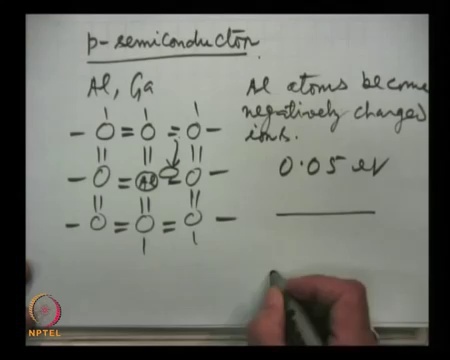 p-semiconductor.
Al, Ga
Al atoms become
negatively charged
ions.
0.05 eV
Al
NPTEL